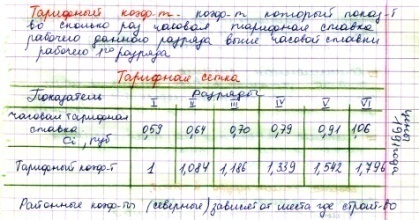 Тарифный коэф-т - коэф-т который показ-т
во сколько раз часовая тарифная ставка
рабочего данного разряда выше часовой ставки
рабочего 1го разряда
Тарифная сетка
Показатели Разряды
I II III IV V VI
Часовая тарифная
ставка 0,59 0,64 0,70 0,79 0,91 1,06
Ci, руб
Тарифный коэф-т 1 1,084 1,186 1,339 1,542 1,796
цены
1991 года
Районные коэф-ты (северные) зависят от места где строит-во